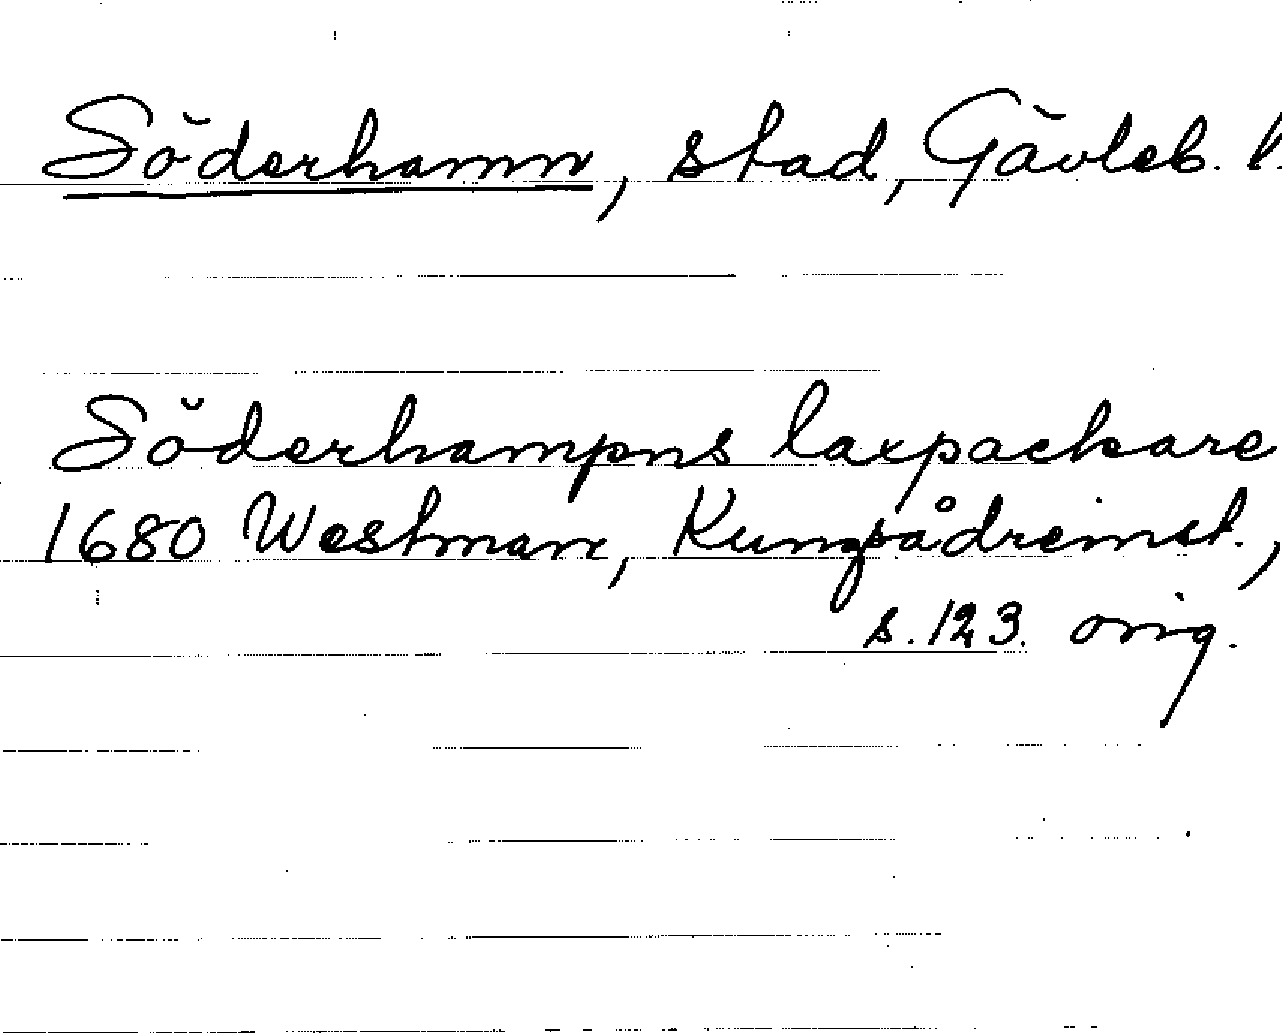 Söderhamn, stad, Gävleb. l.
Söderhampns laxpackare
1680 Westman, Kungsådreinst.,
s. 123. orig.